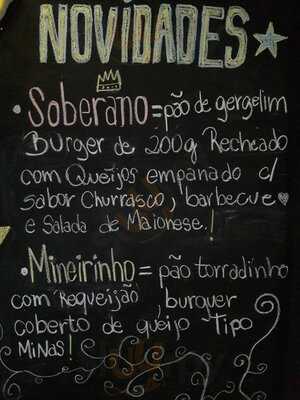 NOVIDADES
• Soberano = pão de gergelim
Burger de 200g Recheado
com Queijos empanado c/
sabor Churrasco, barbecue
e Salada de Maionese.!
• Mineirinho = pão torradinho
com Requeijão, burguer
coberto de queijo Tipo
Minas!